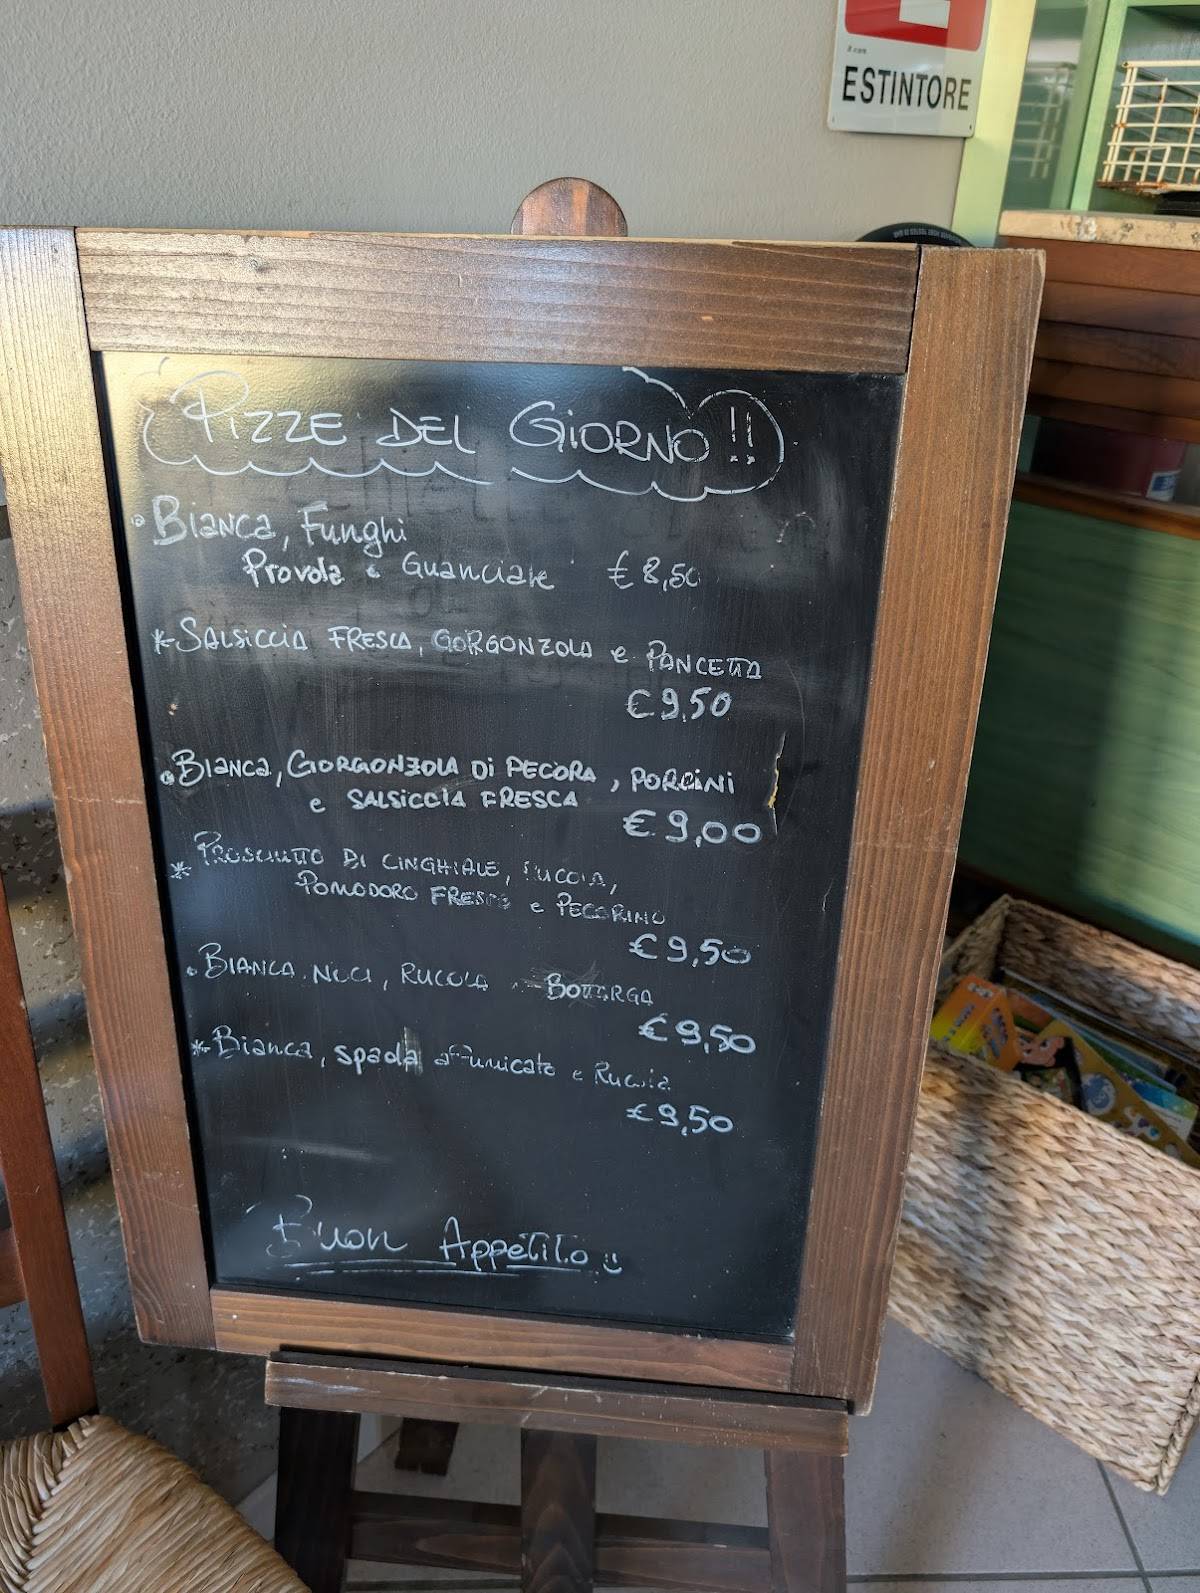 ESTINTORE
PIZZE DEL GIORNO!!
Bianca, Funghi
Provola e Guanciale € 8,50
* SALSICCIA FRESCA, GORGONZOLA e PANCETTA
€ 9,50
Bianca, GORGONZOLA DI PECORA, PORCINI
e SALSICCIA FRESCA
€ 9,00
* PROSCIUTTO DI CINGHIALE, RUCOLA,
POMODORO FRESCO e PECORINO
€ 9,50
BIANCA, NOCI, RUCOLA BOTTARGA
€ 9,50
* Bianca, spada affumicato e Rucola
€ 9,50
Buon Appetito